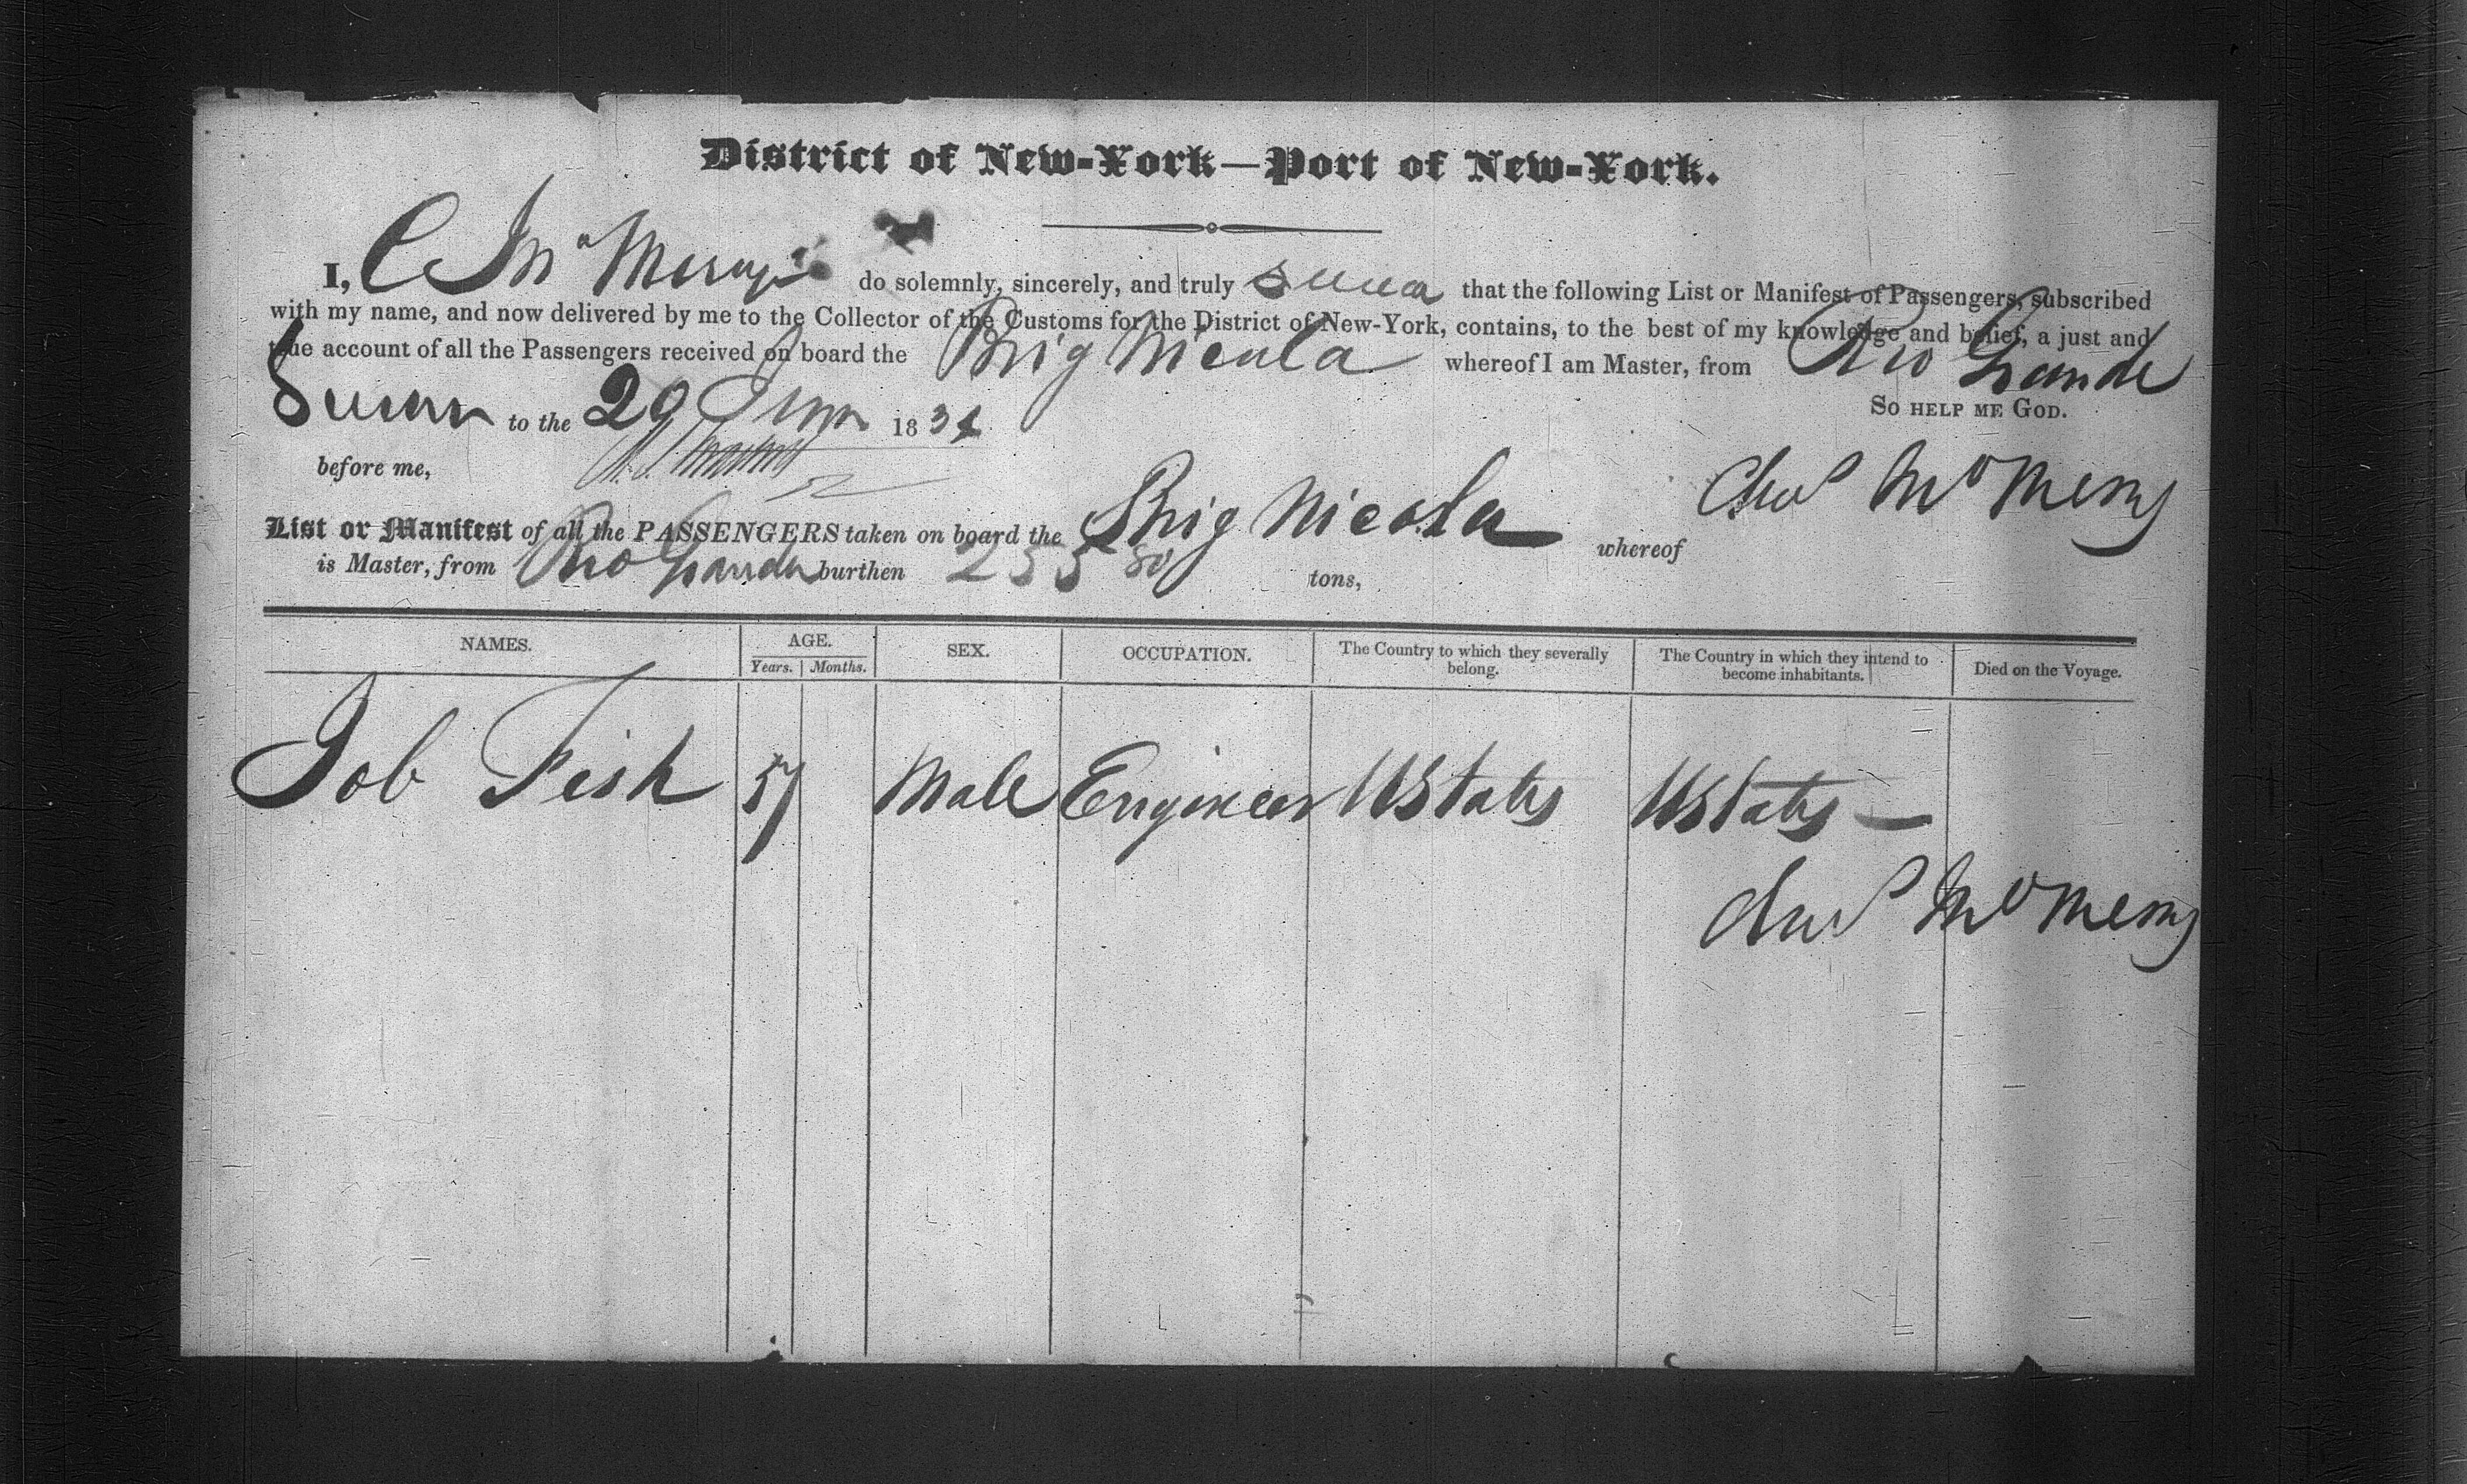 District of New-York—Port of New-York.
I, C McMerry do solemnly, sincerely, and truly swear that the following List or Manifest of Passengers, subscribed
with my name, and now delivered by me to the Collector of the Customs for the District of New-York, contains, to the best of my knowledge and belief, a just and
true account of all the Passengers received on board the Brig Nicola whereof I am Master, from Rio Grande
Sworn to the 29 1834 So help me God.
before me,
Chas McMerry
List or Manifest of all the PASSENGERS taken on board the Brig Nicola whereof
is Master, from Rio Grande burthen 255 80 tons,
NAMES. AGE. Years. Months. SEX. OCCUPATION. The Country to which they severally belong. The Country in which they intend to become inhabitants. Died on the Voyage.
Job Fish 57 Male Engineer UStates UStates —
Chas McMerry